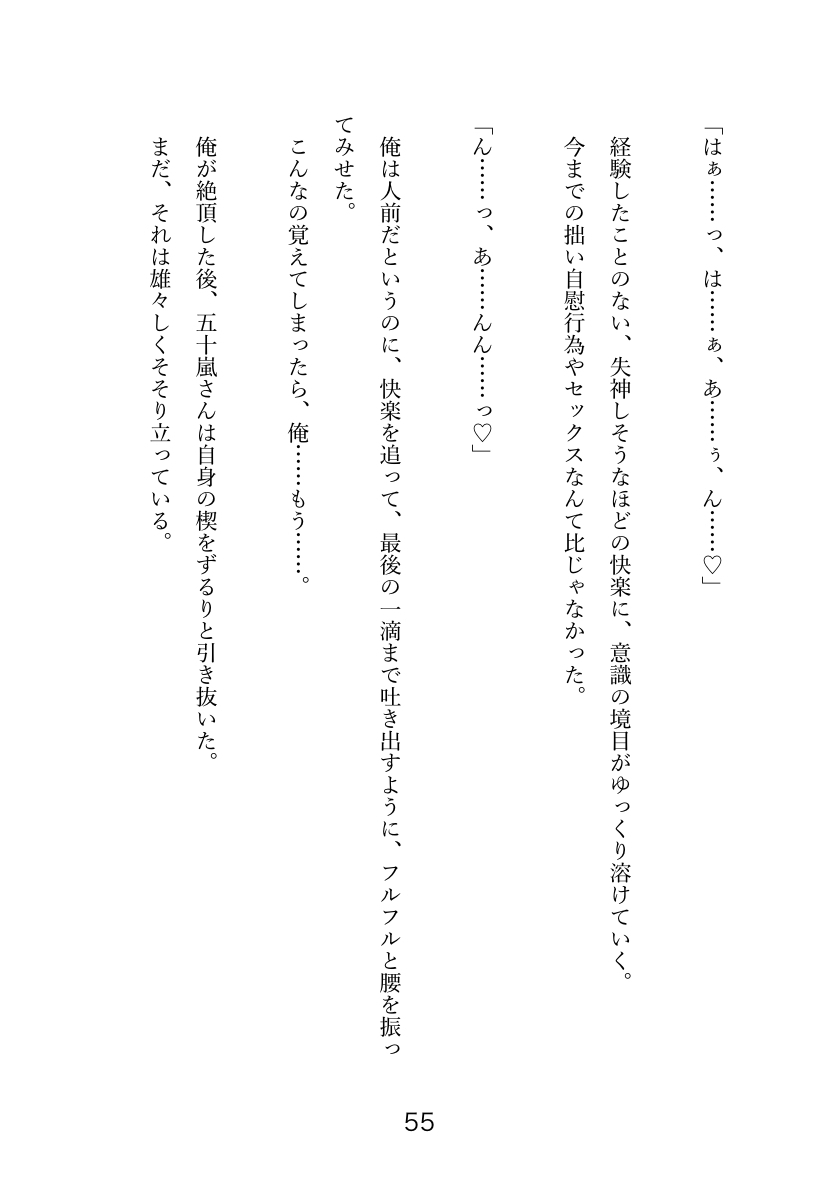 「はぁ……っ、は……ぁ、あ……ぅ、ん……♡」
経験したことのない、失神しそうなほどの快楽に、意識の境目がゆっくり溶けていく。
今までの拙い自慰行為やセックスなんて比じゃなかった。
「ん……っ、あ……んん……っ♡」
俺は人前だというのに、快楽を追って、最後の一滴まで吐き出すように、フルフルと腰を振っ
てみせた。
こんなの覚えてしまったら、俺……もう……。
俺が絶頂した後、五十嵐さんは自身の楔をずるりと引き抜いた。
まだ、それは雄々しくそそり立っている。
55